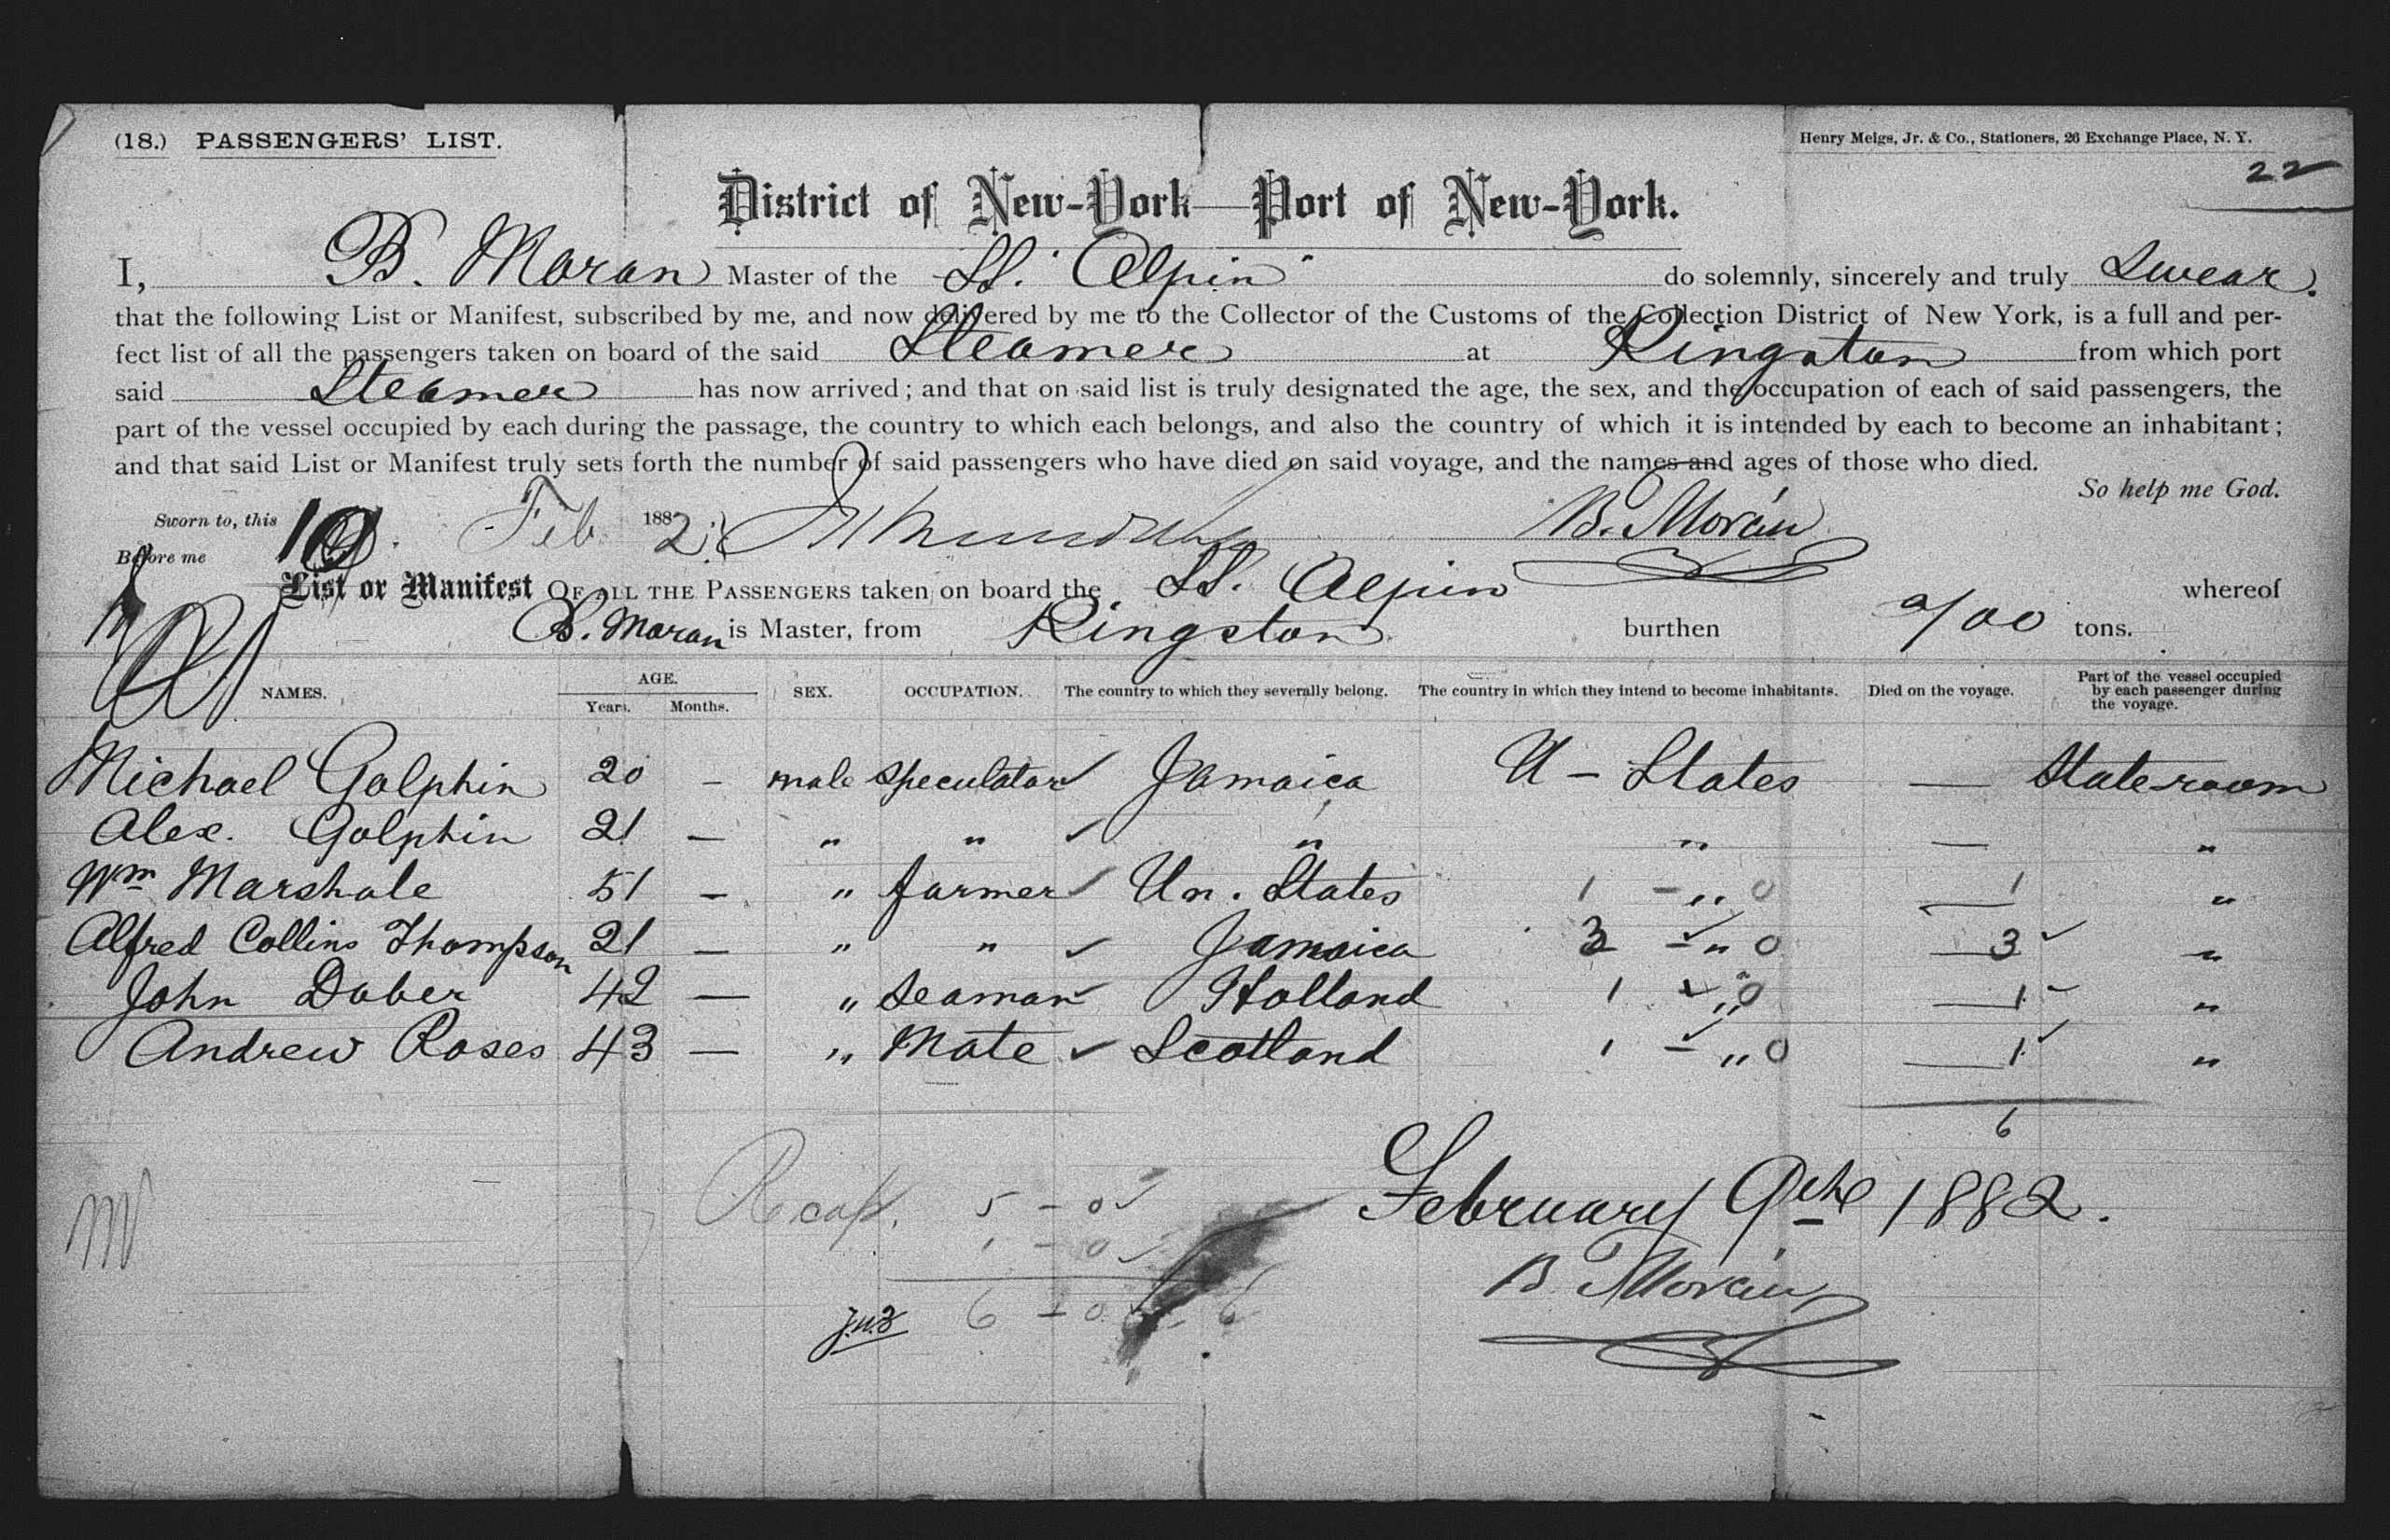 (18.) PASSENGERS' LIST.
Henry Meigs, Jr. & Co., Stationers, 26 Exchange Place, N. Y.
22
District of New-York—Port of New-York.
I, B. Moran Master of the SS. "Alpin" do solemnly, sincerely and truly Swear.
that the following List or Manifest, subscribed by me, and now delivered by me to the Collector of the Customs of the Collection District of New York, is a full and per-
fect list of all the passengers taken on board of the said Steamer at Kingston from which port
said Steamer has now arrived; and that on said list is truly designated the age, the sex, and the occupation of each of said passengers, the
part of the vessel occupied by each during the passage, the country to which each belongs, and also the country of which it is intended by each to become an inhabitant;
and that said List or Manifest truly sets forth the number of said passengers who have died on said voyage, and the names and ages of those who died.
So help me God.
Sworn to, this 10 Feb 1882 B. Moran
Before me
List or Manifest OF ALL THE PASSENGERS taken on board the SS. Alpin whereof
B. Moran is Master, from Kingston burthen 900 tons.
NAMES. AGE. Years. Months. SEX. OCCUPATION. The country to which they severally belong. The country in which they intend to become inhabitants. Died on the voyage. Part of the vessel occupied by each passenger during the voyage.
Michael Golphin 20 – male speculator ✓ Jamaica U – States — Stateroom
Alex. Golphin 21 — " " ✓ " " — "
Wm Marshale 51 – " farmer ✓ Un. States 1 – " 0 — 1 "
Alfred Collins Thompson 21 — " " ✓ Jamaica 3 – " 0 — 3 ✓ "
John Daber 42 — " Seaman ✓ Holland 1 – " 0 — 1 ✓ "
Andrew Roses 43 — " Mate ✓ Scotland 1 – " 0 — 1 ✓ "
6
Recap. 5 – 0 ✓
1 – 0 ✓
6 – 0 – 6
February 9th 1882.
B. Moran